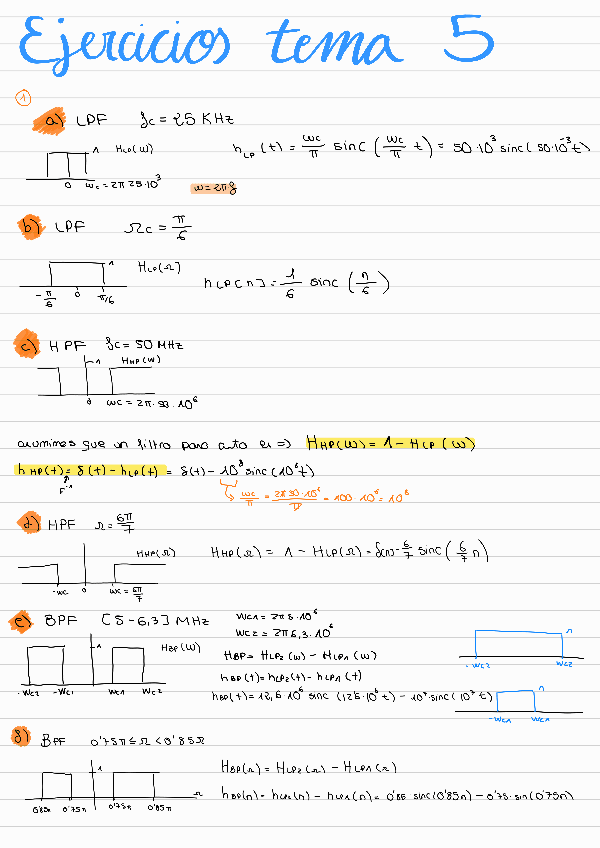 Ejercicios tema 5
1
a) LPF fc = 25 KHz
1 HLP(w)
0 wc = 2π 25·10³
w = 2πf
hLP(t) = wc/π sinc (wc/π t) = 50·10³ sinc(50·10⁻³ t)
b) LPF Ωc = π/6
1 HLP(Ω)
-π/6 0 π/6
hLP[n] = 1/6 sinc (n/6)
c) HPF fc = 50 MHz
1 HHP(w)
0 wc = 2π·50·10⁶
asumimos que un filtro paso alto es => HHP(w) = 1 - HLP(w)
hHP(t) = δ(t) - hLP(t) = δ(t) - 10⁸ sinc(10⁶t)
F⁻¹
wc/π = 2π50·10⁶/π = 100·10⁶ = 10⁸
d) HPF Ω = 6π/7
HHP(Ω)
-wc 0 wc = 6π/7
HHP(Ω) = 1 - HLP(Ω) = δ(n) - 6/7 sinc (6/7 n)
e) BPF [5 - 6,3] MHz
wc1 = 2π5·10⁶
wc2 = 2π6,3·10⁶
1 HBP(w)
-wc2 -wc1 wc1 wc2
HBP = HLP2(w) - HLP1(w)
hBP(t) = hLP2(t) - hLP1(t)
hBP(t) = 12,6·10⁶ sinc (12,6·10⁶ t) - 10⁷ sinc(10⁷ t)
1
-wc2 wc2
1
-wc1 wc1
f) BPF 0'75π ≤ Ω < 0'85Ω
1
Ω
0'85π 0'75π 0'75π 0'85π
HBP(Ω) = HLP2(Ω) - HLP1(Ω)
hBP(n) = hLP2(n) - hLP1(n) = 0'85 sinc(0'85n) - 0'75·sin(0'75n)